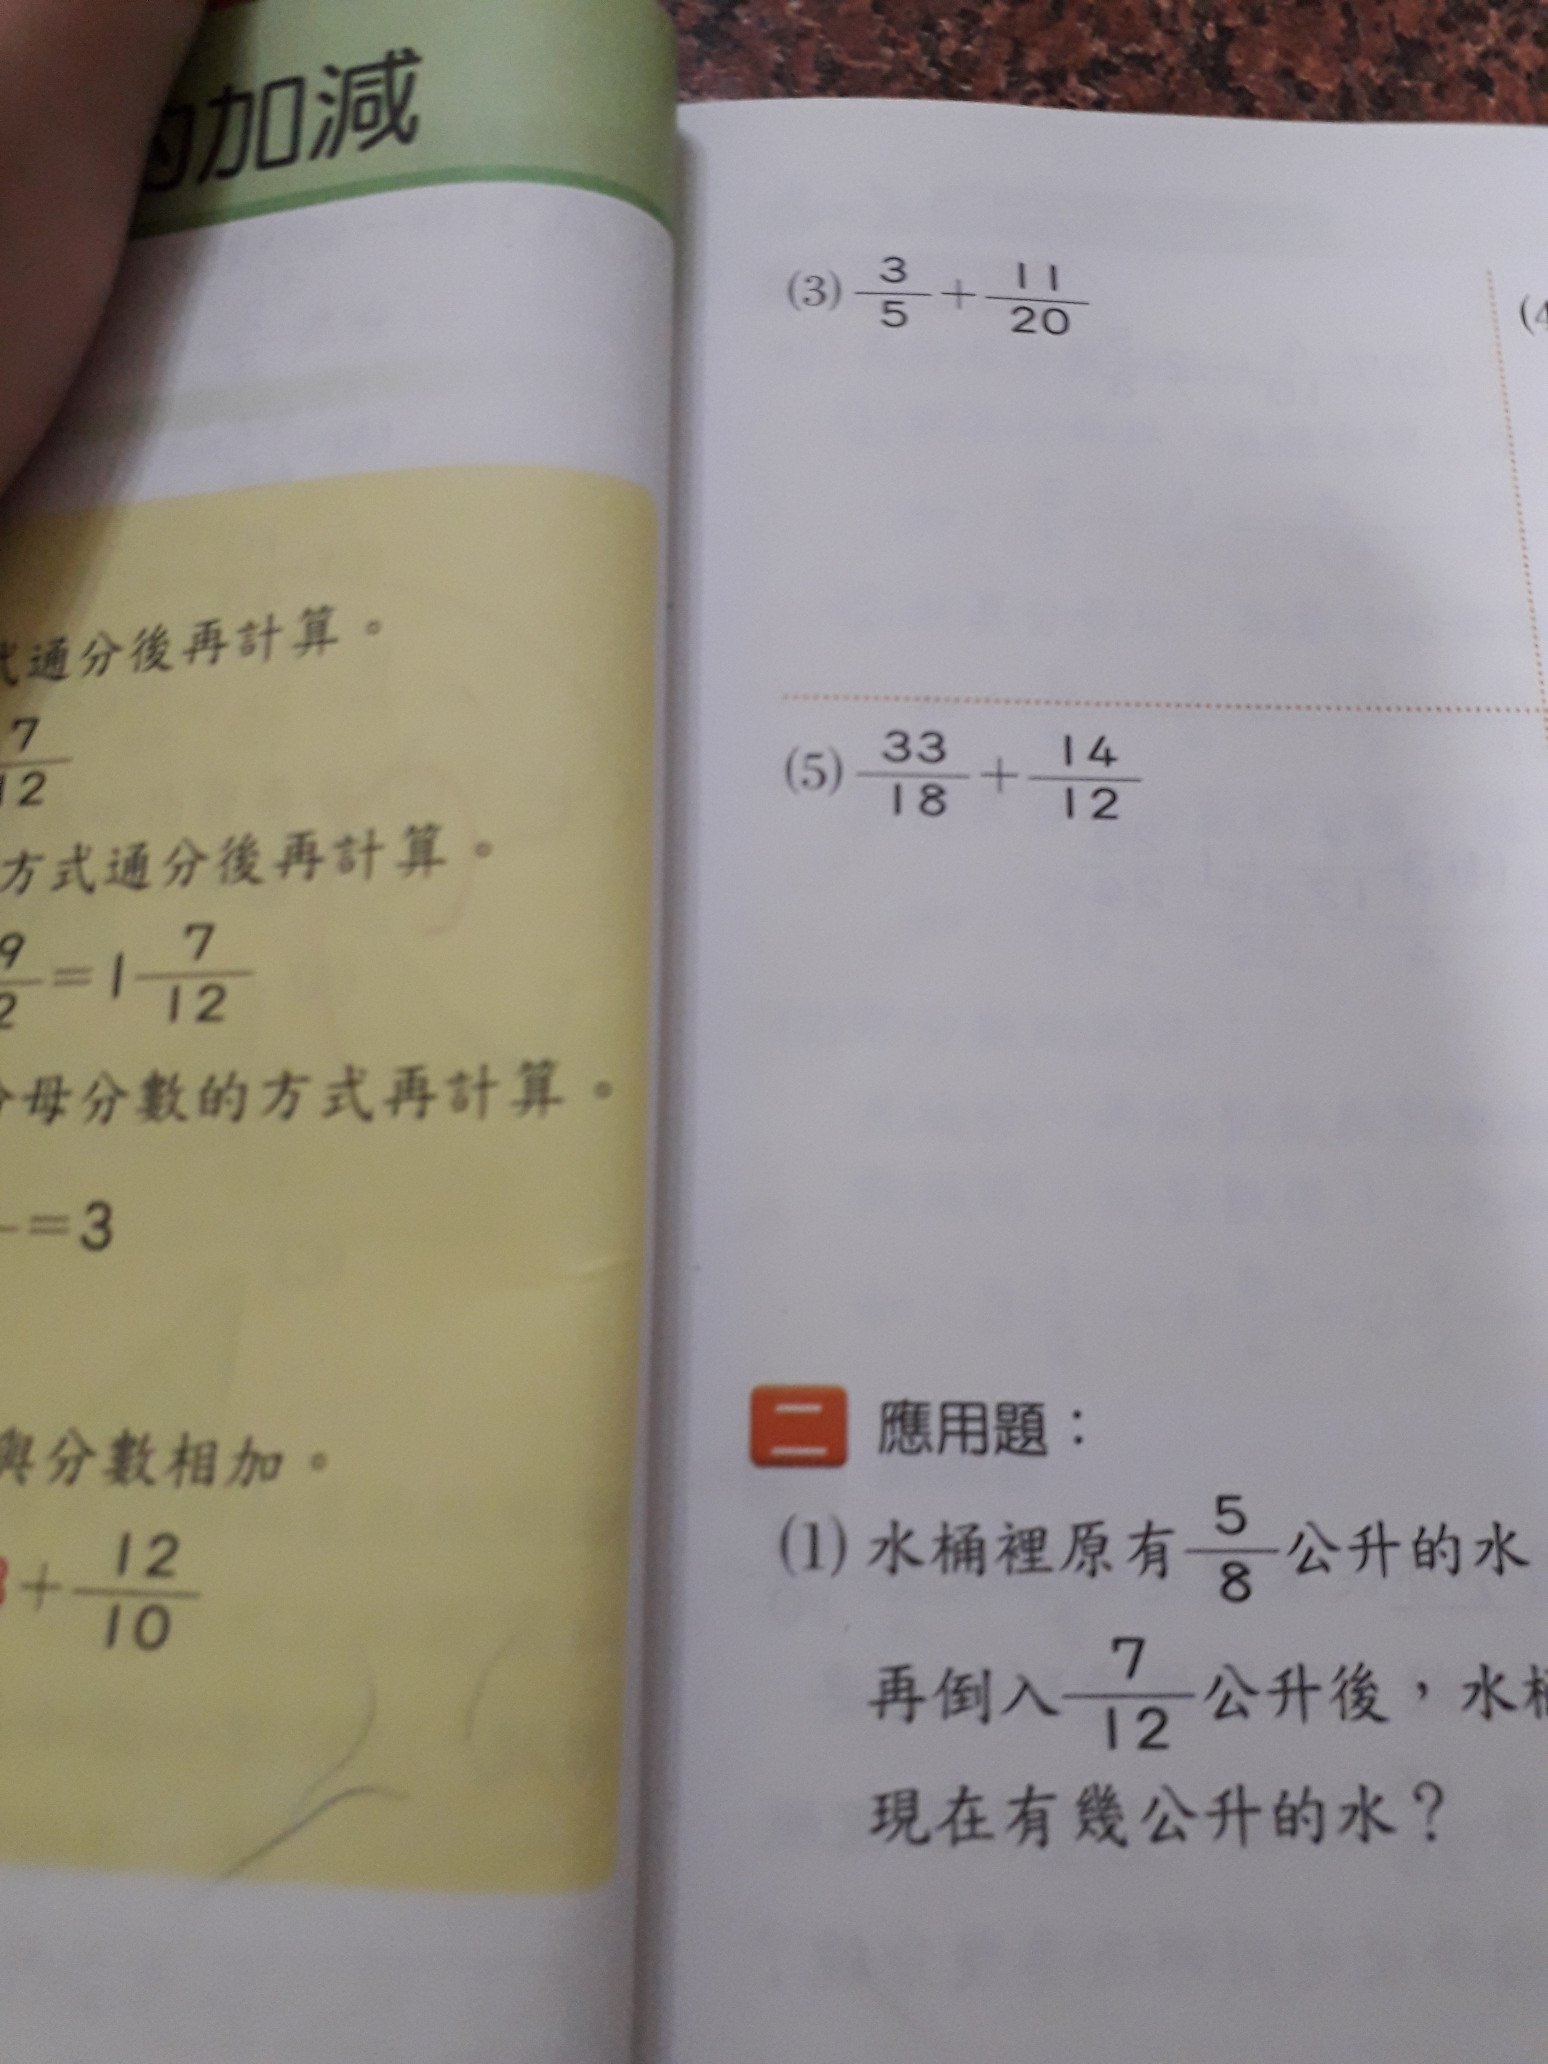 加減
通分後再計算。
7/12
方式通分後再計算。
=1 7/12
母分數的方式再計算。
=3
與分數相加。
+ 12/10
(3) 3/5 + 11/20
(5) 33/18 + 14/12
二 應用題：
(1) 水桶裡原有 5/8 公升的水
再倒入 7/12 公升後，水桶
現在有幾公升的水？